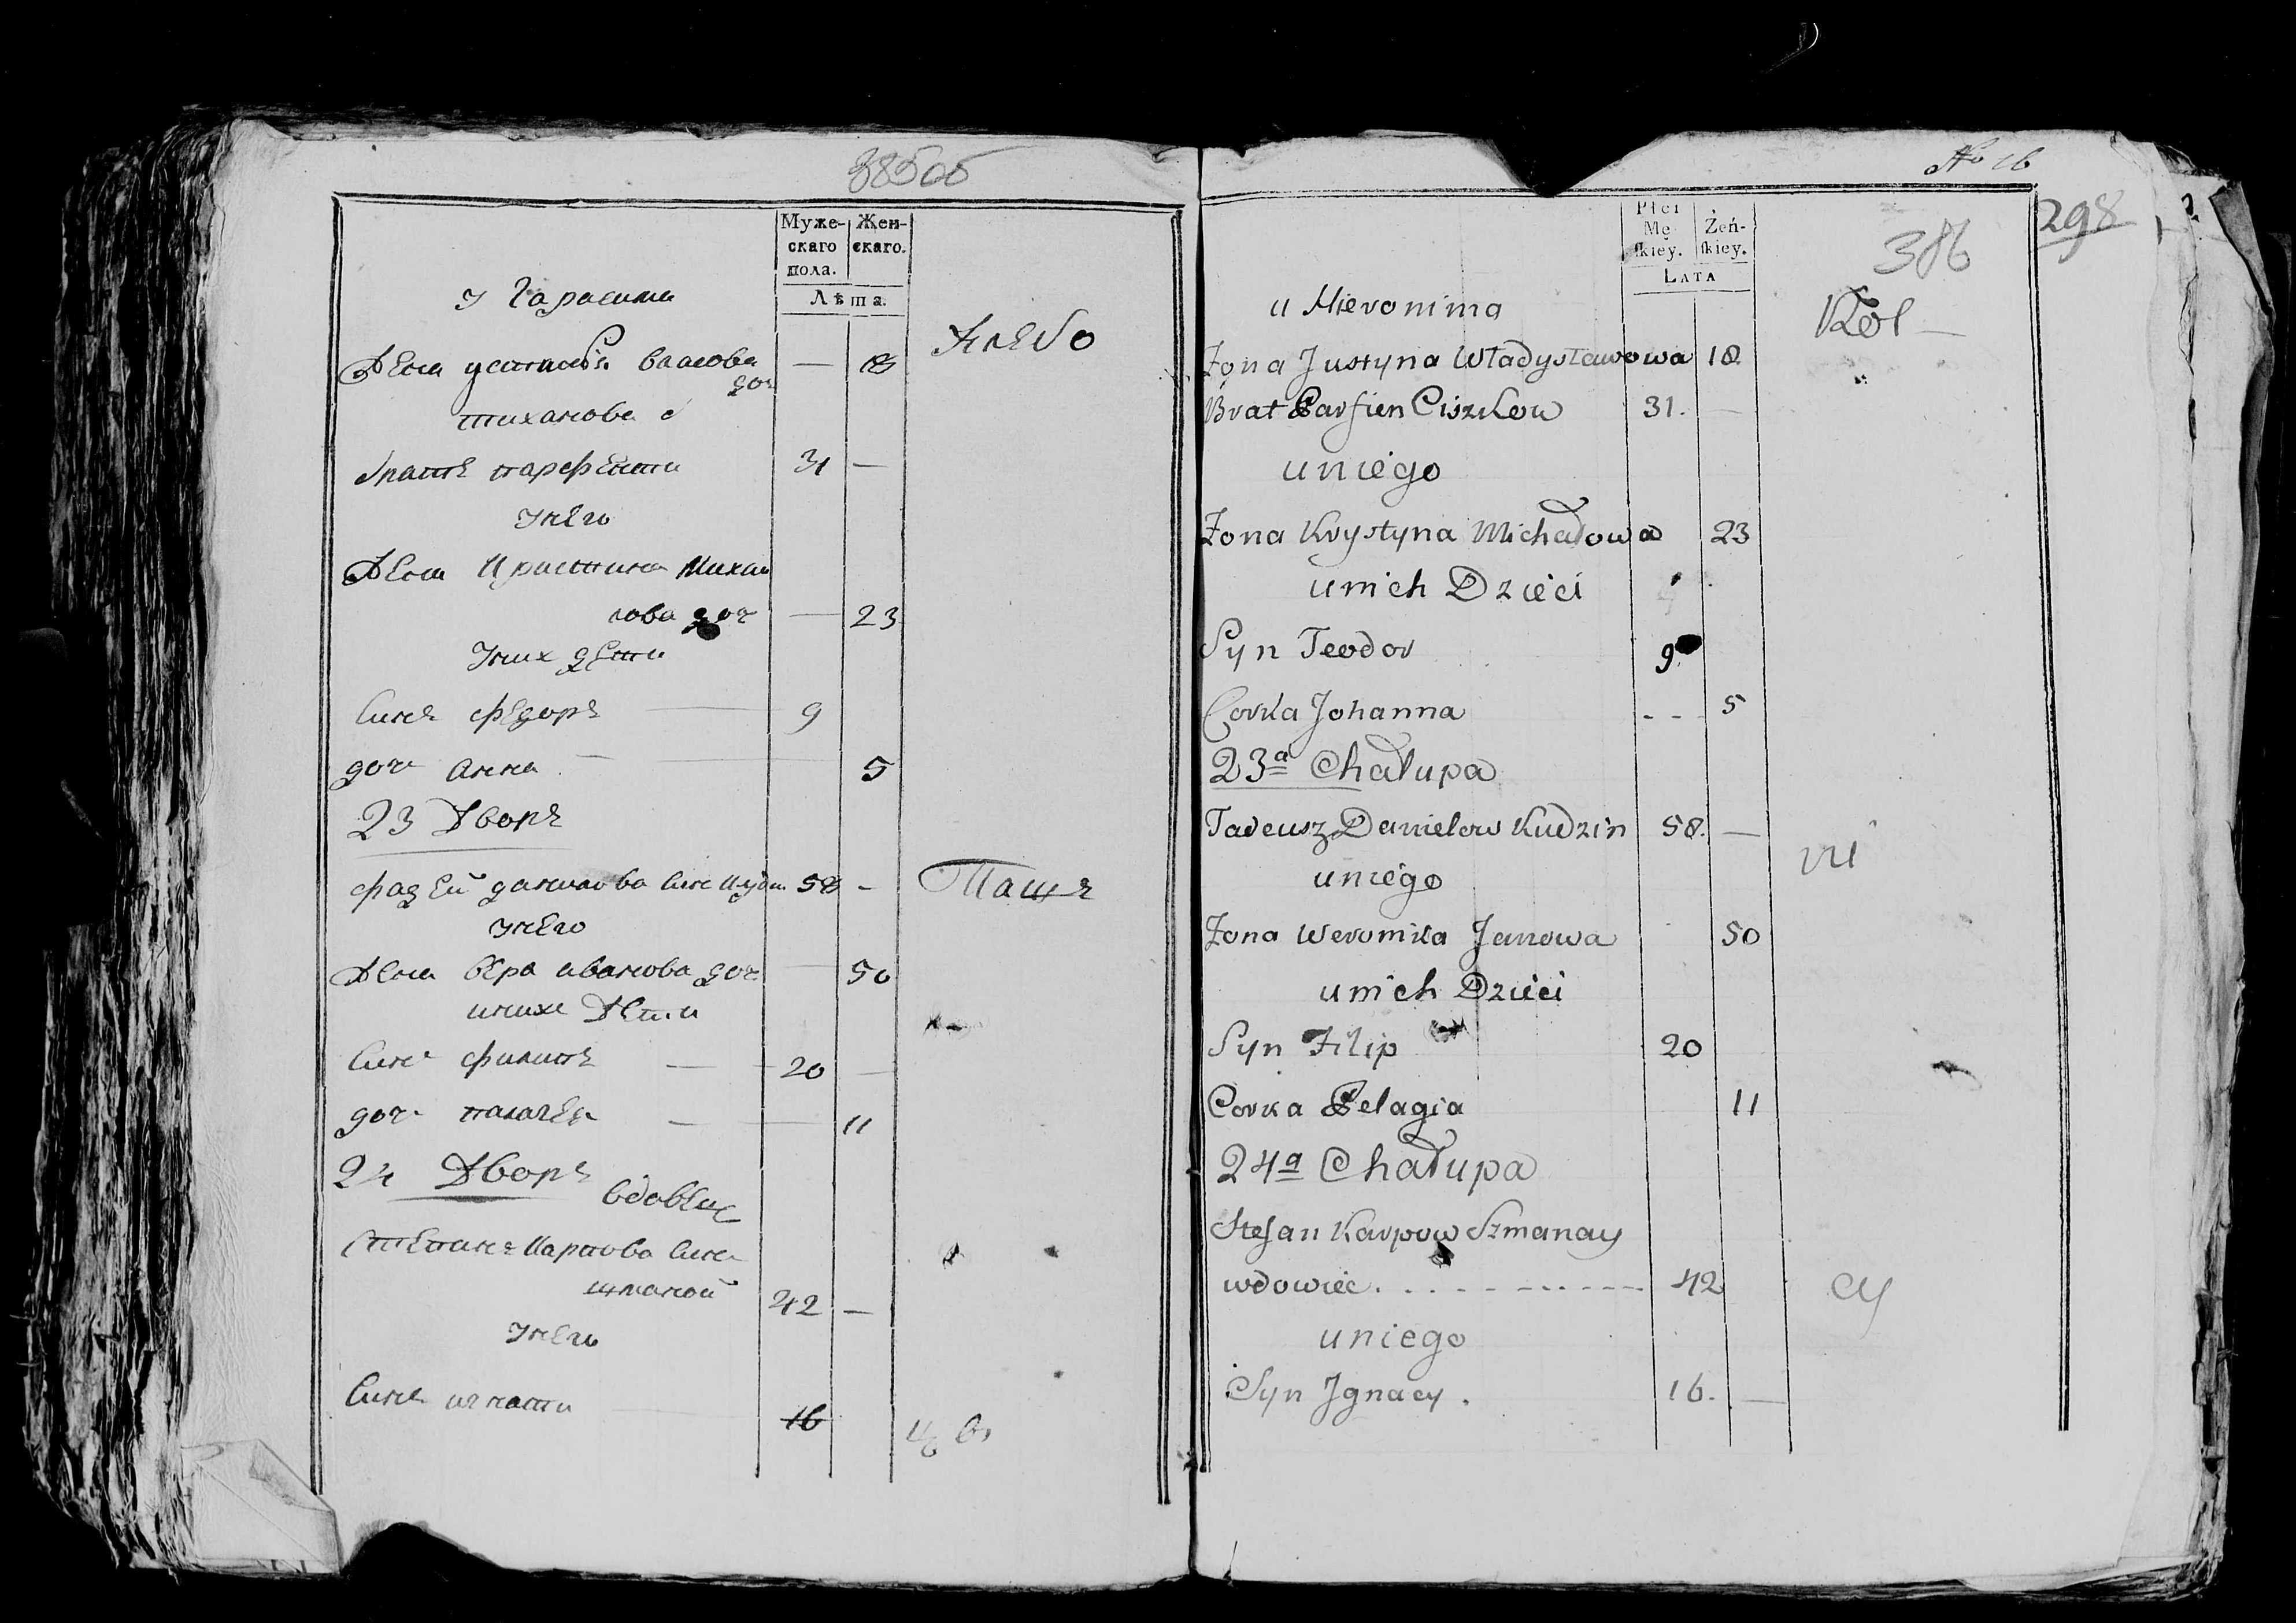 Муже-
скаго
пола.
Жен-
скаго.
Лѣта.
у Гарасима
жена устинья власова
доч
тиханова
братъ парфенти
У него
жена Кристина Михаи
лова доч — 23
У них дети
Синъ федоръ — 9
доч анна — 5
23 Дворъ
фадей данилова Синъ Кудин 58 —
У него
жена вера иванова доч — 50
У нихъ Дети
Синъ филипъ — 20 —
доч палагея — 11
24 Дворъ
вдовец
Степанъ Карпова Синъ
шманой 42 —
У него
Синъ игнати 16
№ 16
298
386
Płci
Mę
skiey.
Żeń-
skiey.
LATA
u Hieronima
Żona Justyna Władysławowa 18
Brat Parfien Ciszkow 31. —
u niego
Żona Krystyna Michałowa 23
u nich Dzieci
Syn Teodor 9
Corka Johanna - - - 5
23a Chałupa
Tadeusz Danielow Kudzin 58. —
u niego
Żona Weronika Janowa 50
u nich Dzieci
Syn Filip 20
Corka Pelagia 11
24a Chałupa
Stefan Karpow Szmanay
wdowiec. 42
u niego
Syn Jgnacy. 16. —